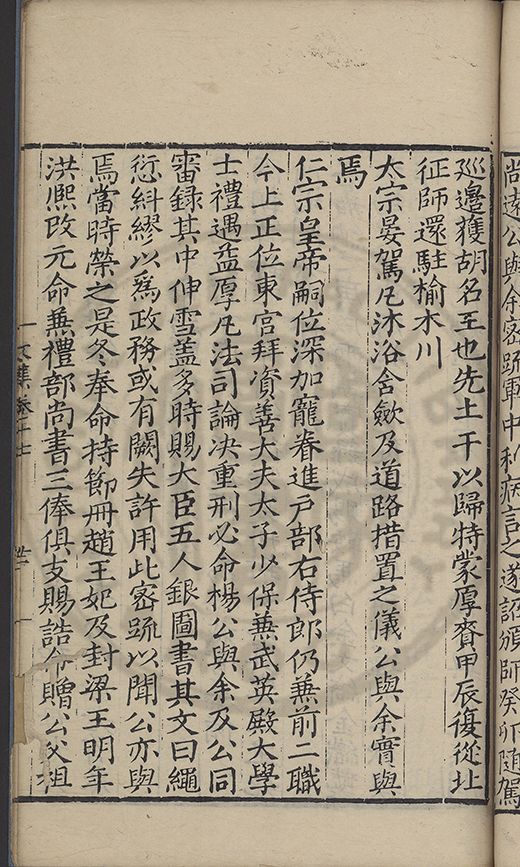 尚遠公與余密䟽軍中利病言之遂詔頒師癸卯隨駕
廵邊獲胡名王也先土干以歸特蒙厚賚甲辰復從北
征師還駐榆木川
太宗晏駕凡沐浴含歛及道路措置之儀公與余實與
焉
仁宗皇帝嗣位深加寵眷進戶部右侍郎仍兼前二職
今上正位東宮拜資善大夫太子少保兼武英殿大學
士禮遇益厚凡法司論决重刑必命楊公與余及公同
審録其中伸雪盖多時賜大臣五人銀圖書其文曰繩
愆糾繆以爲政務或有闕失許用此密䟽以聞公亦與
焉當時榮之是冬奉命持節冊趙王妃及封梁王明年
洪熈改元命兼禮部尚書三俸俱支賜誥命贈公父祖